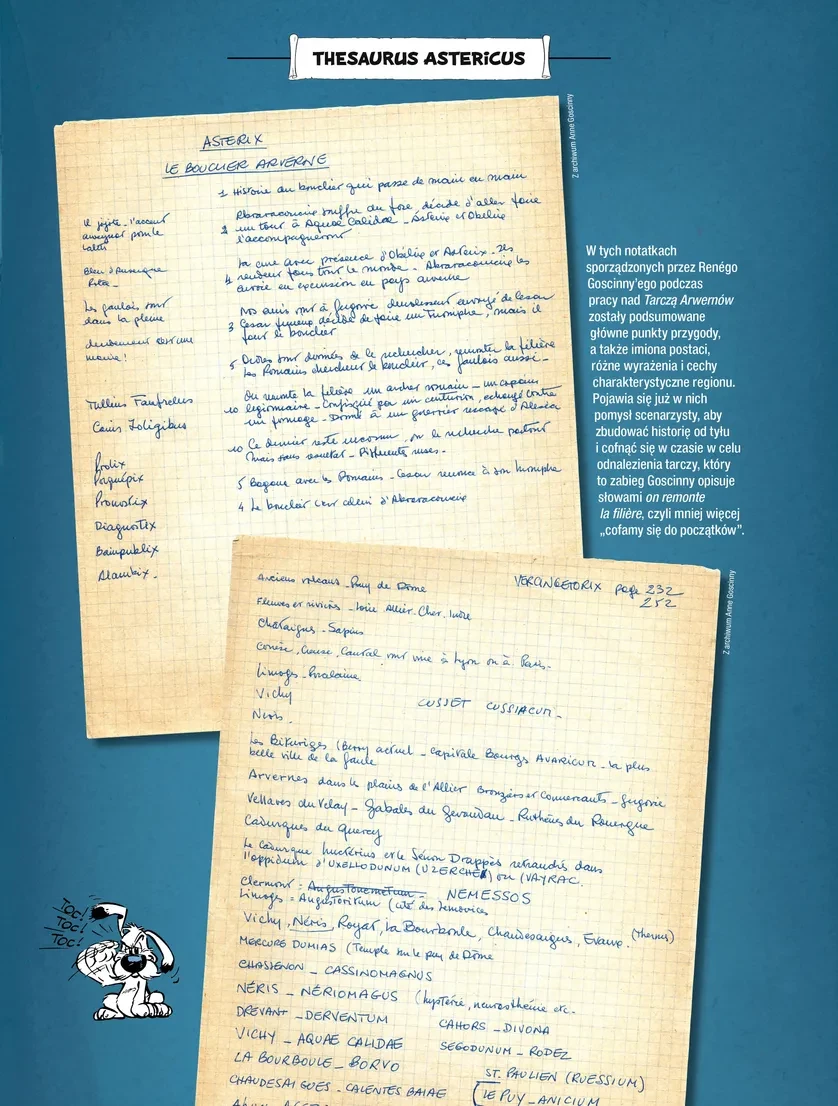 THESAURUS ASTERICUS
Z archiwum Anne Goscinny
ASTERIX
LE BOUCLIER ARVERNE
1 Histoire du bouclier qui passe de main en main
Abraracourcix souffre du foie décide d'aller faire
2 un tour à Aquae Calidae - Astérix et Obélix
l'accompagneront
La cure avec présence d'Obélix et Astérix. Ils
4 rendent fous tout le monde - Abraracourcix les
envoie en excursion en pays arverne
Nos amis vont à Gergovie envoyé de César
3 César furieux décide de faire un triomphe, mais il
faut le bouclier
5 Ordres sont donnés de le rechercher, remonter la filière
Les Romains cherchent le bouclier, les gaulois aussi -
On remonte la filière un archer romain - un copain
10 légionnaire - Confisqué par un centurion, échangé contre
un - Donné à un guerrier rescapé d'Alésia
10 Ce dernier reste inconnu, on le recherche partout
Mais sans résultat - Différentes ruses -
5 Bagarre avec les Romains - César renonce à son triomphe
4 Le bouclier c'est celui d'Abraracourcix
Il l'accent
auvergnat pour le
Bleu d'Auvergne
Les gaulois sont
dans la plaine
c'est une
manie!
Tullius Fanfrelus
Caius Joligibus
Prolix
Pronostix
Diagnostix
Bainpublix
Alambix -
W tych notatkach
sporządzonych przez Renégo
Goscinny'ego podczas
pracy nad Tarczą Arwernów
zostały podsumowane
główne punkty przygody,
a także imiona postaci,
różne wyrażenia i cechy
charakterystyczne regionu.
Pojawia się już w nich
pomysł scenarzysty, aby
zbudować historię od tyłu
i cofnąć się w czasie w celu
odnalezienia tarczy, który
to zabieg Goscinny opisuje
słowami on remonte
la filière, czyli mniej więcej
„cofamy się do początków”.
Z archiwum Anne Goscinny
VERCINGETORIX page 232
252
Anciens volcans - Puy de Dôme
Fleuves et rivières - Loire Allier, Cher, Indre
Châtaignes - Sapins
Corrèze, Creuse, Cantal vont à Lyon ou à Paris -
Limoges - Porcelaine
Vichy
CUSSET CUSSIACUM -
Néris -
Les Bituriges (Berry actuel - Capitale Bourges AVARICUM - la plus
belle ville de la Gaule
Arvernes dans la plaine de l'Allier Bronziers et Commerçants - Gergovie
Vellaves du Velay - Gabales du Gévaudan - Ruthènes du Rouergue
Cadurques du Quercy
Le Cadurque luctérius et le Sénon Drappès retranchés dans
l'oppidum d'UXELLODUNUM (UZERCHE) ou (VAYRAC.
Clermont = Augustonemetum - NEMESSOS
Limoges = Augustoritum (cité des lemovices
Vichy, Néris, Royat, La Bourboule, Chaudesaigues, Evaux. (Thermes)
MERCURE DUMIAS (Temple sur le puy de Dôme
CHASSENON - CASSINOMAGNUS
NÉRIS - NÉRIOMAGUS (hystérie, neurasthénie etc.
DREVANT - DERVENTUM
CAHORS - DIVONA
VICHY - AQUAE CALIDAE
SEGODUNUM - RODEZ
LA BOURBOULE - BORVO
ST. PAULIEN (RUESSIUM)
CHAUDESAIGUES - CALENTES BAIAE
LE PUY - ANICIUM
TOC!
TOC!
TOC!